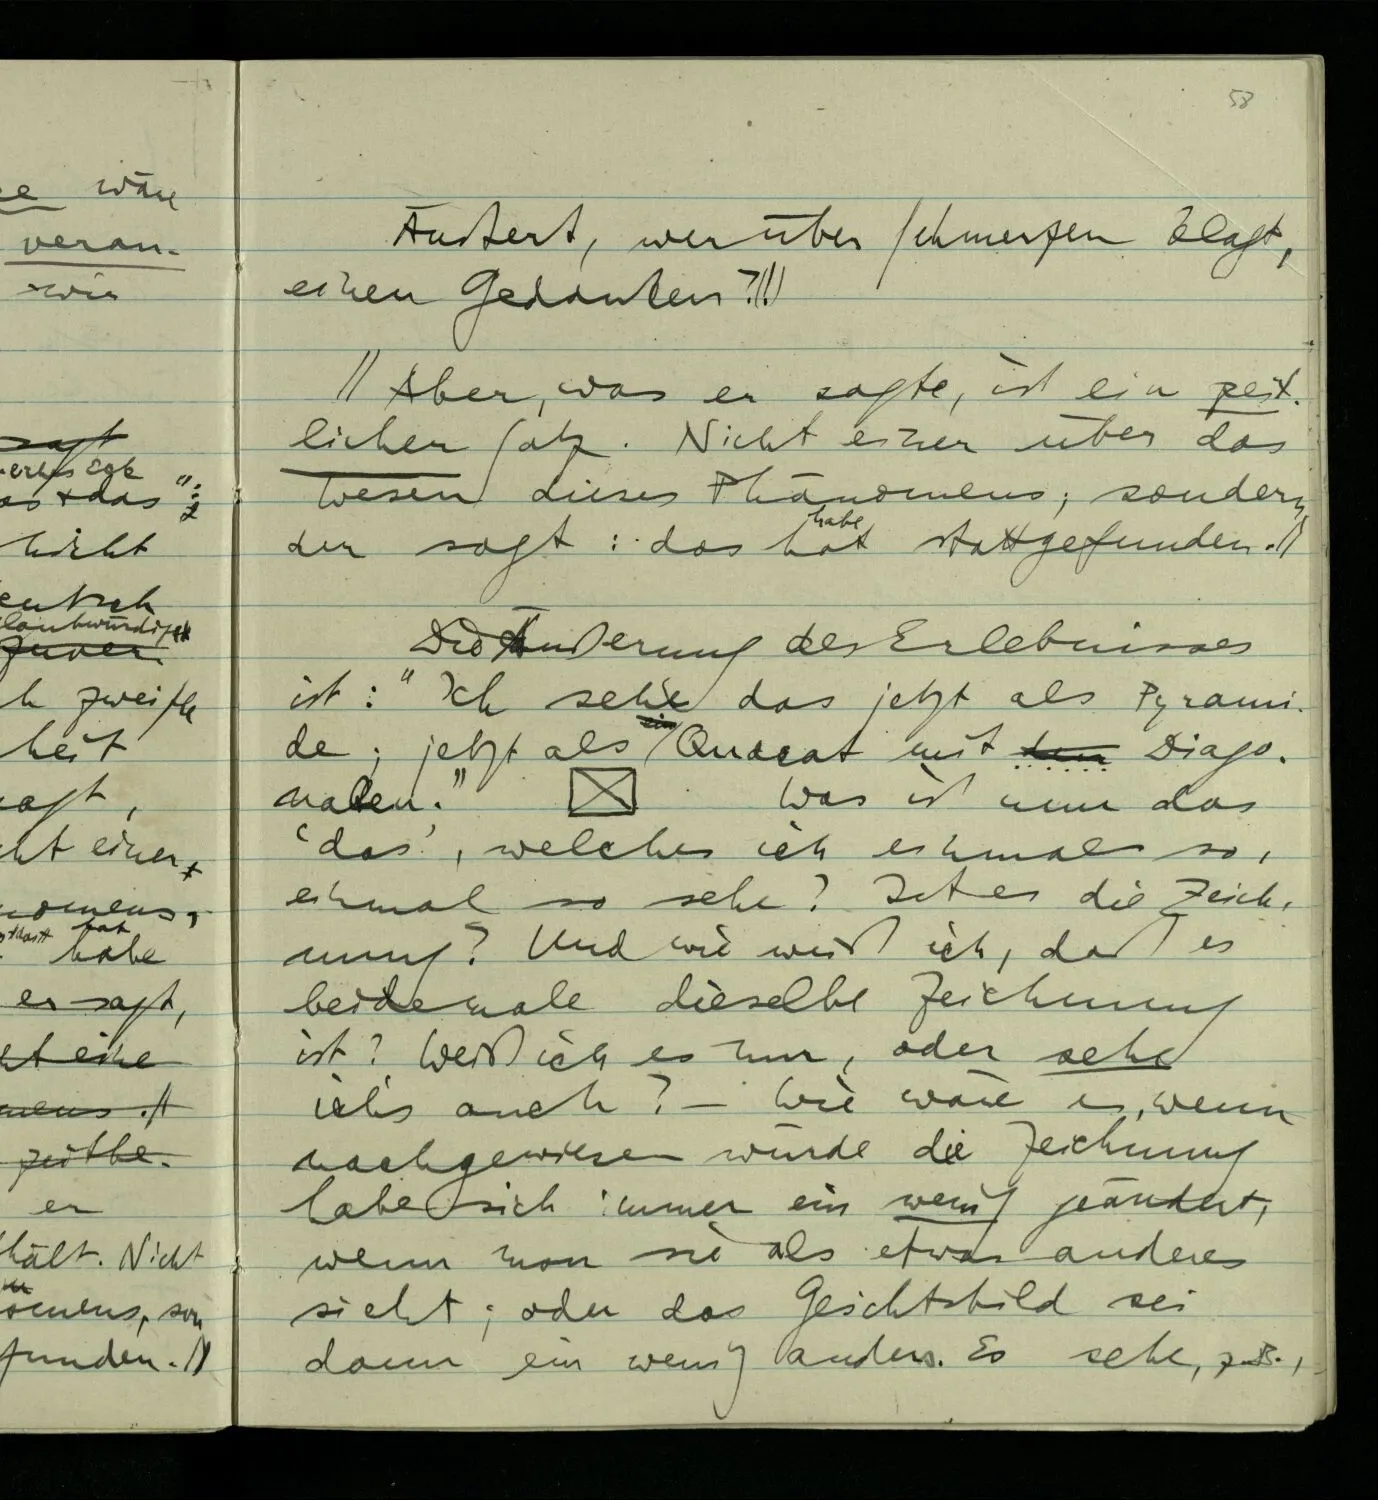 wäre
veran-
wie
sagt
das + das":
nicht
glaubwürdig
h zweifle
heit
sagt,
ht einer
nomens,
hat
habe
er sagt,
eine
mens.//
er
hält. Nicht
omens, son
funden.//
58
Äußert, wer über Schmerzen klagt,
einen Gedanken?//
// Aber, was er sagte, ist ein zeit-
licher Satz. Nicht einer über das
Wesen dieses Phänomens; sondern
habe
der sagt: das hat stattgefunden.//
Die Äußerung des Erlebnisses
ist: "Ich sehe das jetzt als Pyrami-
ein
de; jetzt als Quadrat mit den Diago-
nalen." Was ist nun das
'das', welches ich einmal so,
einmal so sehe? Ist es die Zeich-
nung? Und wie weiß ich, daß es
beidemale dieselbe Zeichnung
ist? Weiß ich es nur, oder sehe
ich's auch? – Wie wäre es, wenn
nachgewiesen würde die Zeichnung
habe sich immer ein wenig geändert,
wenn man sie als etwas anderes
sieht; oder das Gesichtsbild sei
dann ein wenig anders. Es sehe, z.B.,